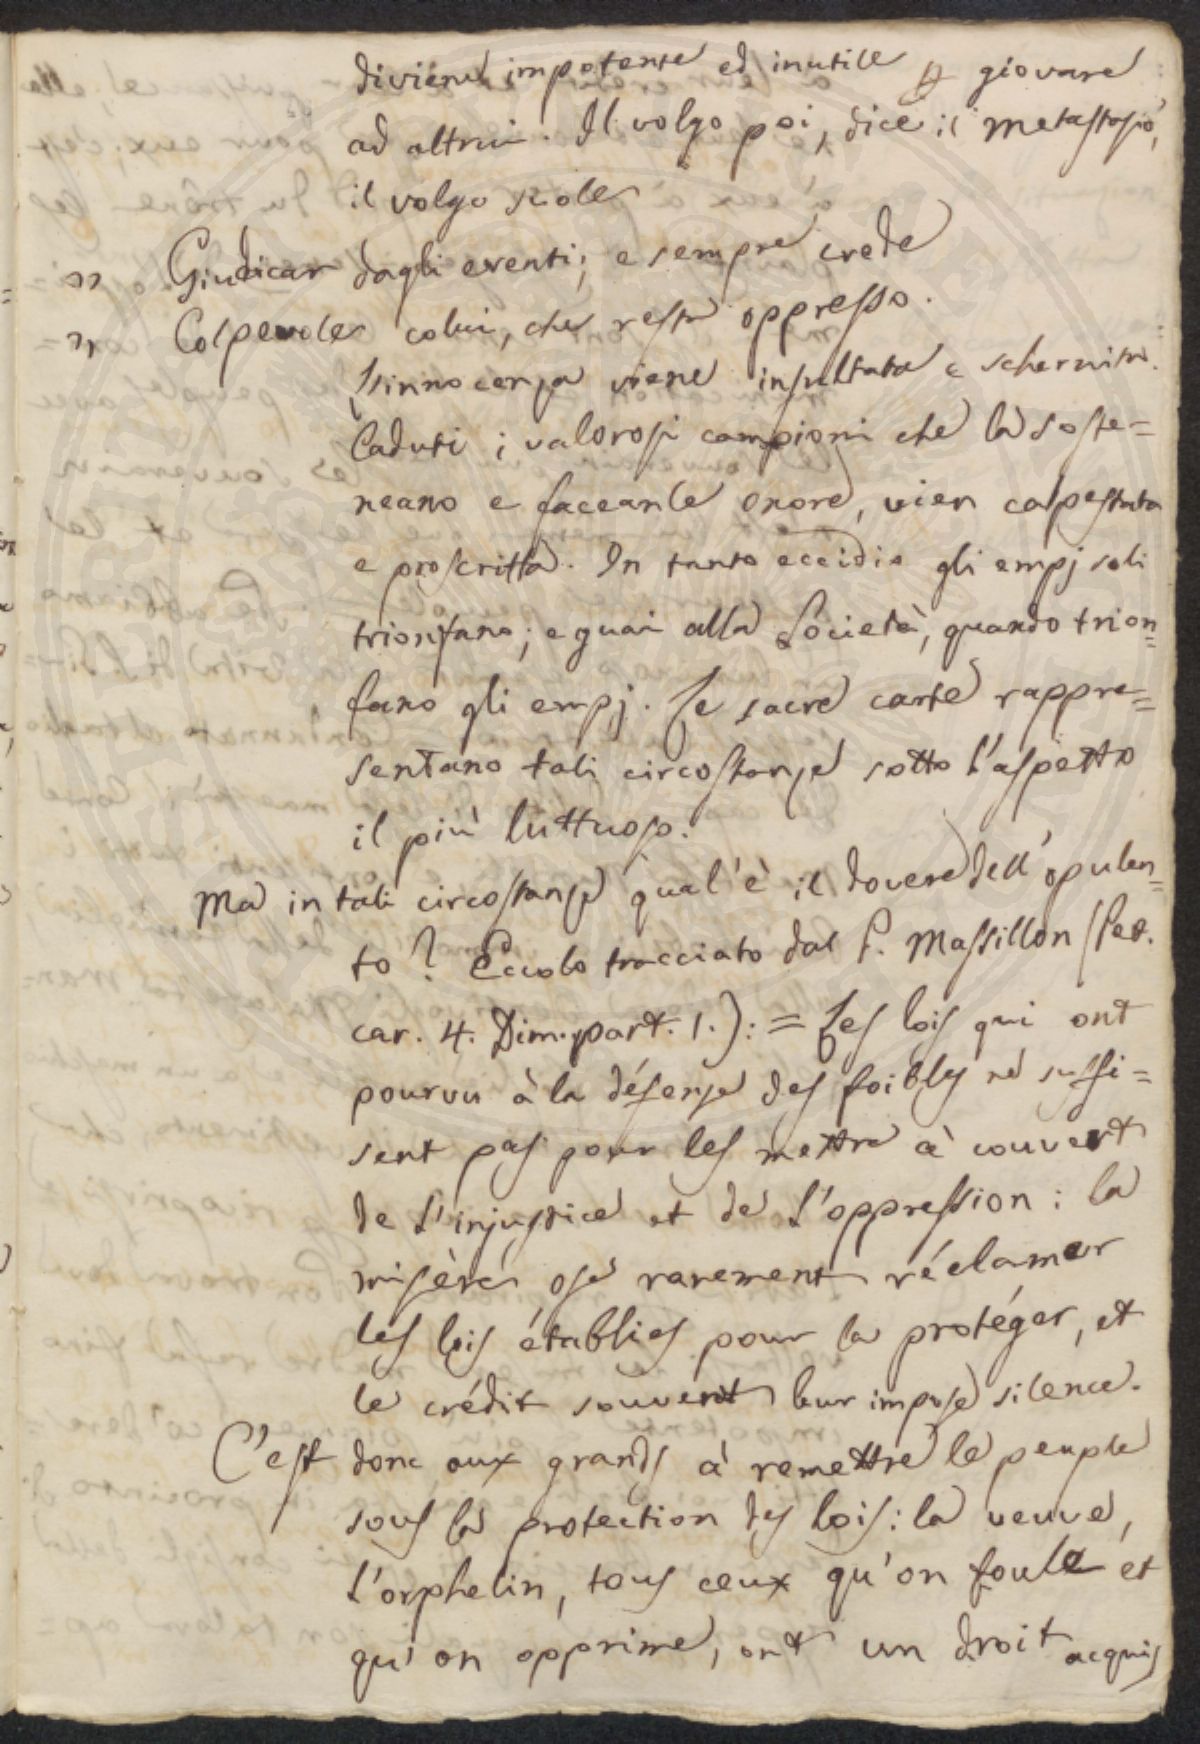 diviene impotente ed inutile p giovare
ad altrui. Il volgo poi, dice il Metastasio,
il volgo suole
" Giudicar dagli eventi; e sempre crede
" Colpevole colui, che resta oppresso.
L'innocenza viene insultata e schernita.
Caduti i valorosi campioni che la soste=
neano e faceanle onore, vien calpestata
e proscritta. In tanto eccidio gli empj soli
trionfano; e guai alla Società, quando trion=
fano gli empj. Le sacre carte rappre=
sentano tali circostanze sotto l'aspetto
il più luttuoso.
Ma in tali circostanze qual'è il dovere dell'opulen=
to? Eccolo tracciato dal P. Massillon (Pet.
car. 4. Dim. part. 1.): = Les lois qui ont
pourvu à la défense des foibles ne suffi=
sent pas pour les mettre à couvert
de l'injustice et de l'oppression: la
misère ose rarement réclamer
les lois établies pour la protéger, et
le crédit souvent leur impose silence.
C'est donc aux grands à remettre le peuple
sous la protection des lois: la veuve,
l'orphelin, tous ceux qu'on foule et
qu'on opprime, ont un droit acquis